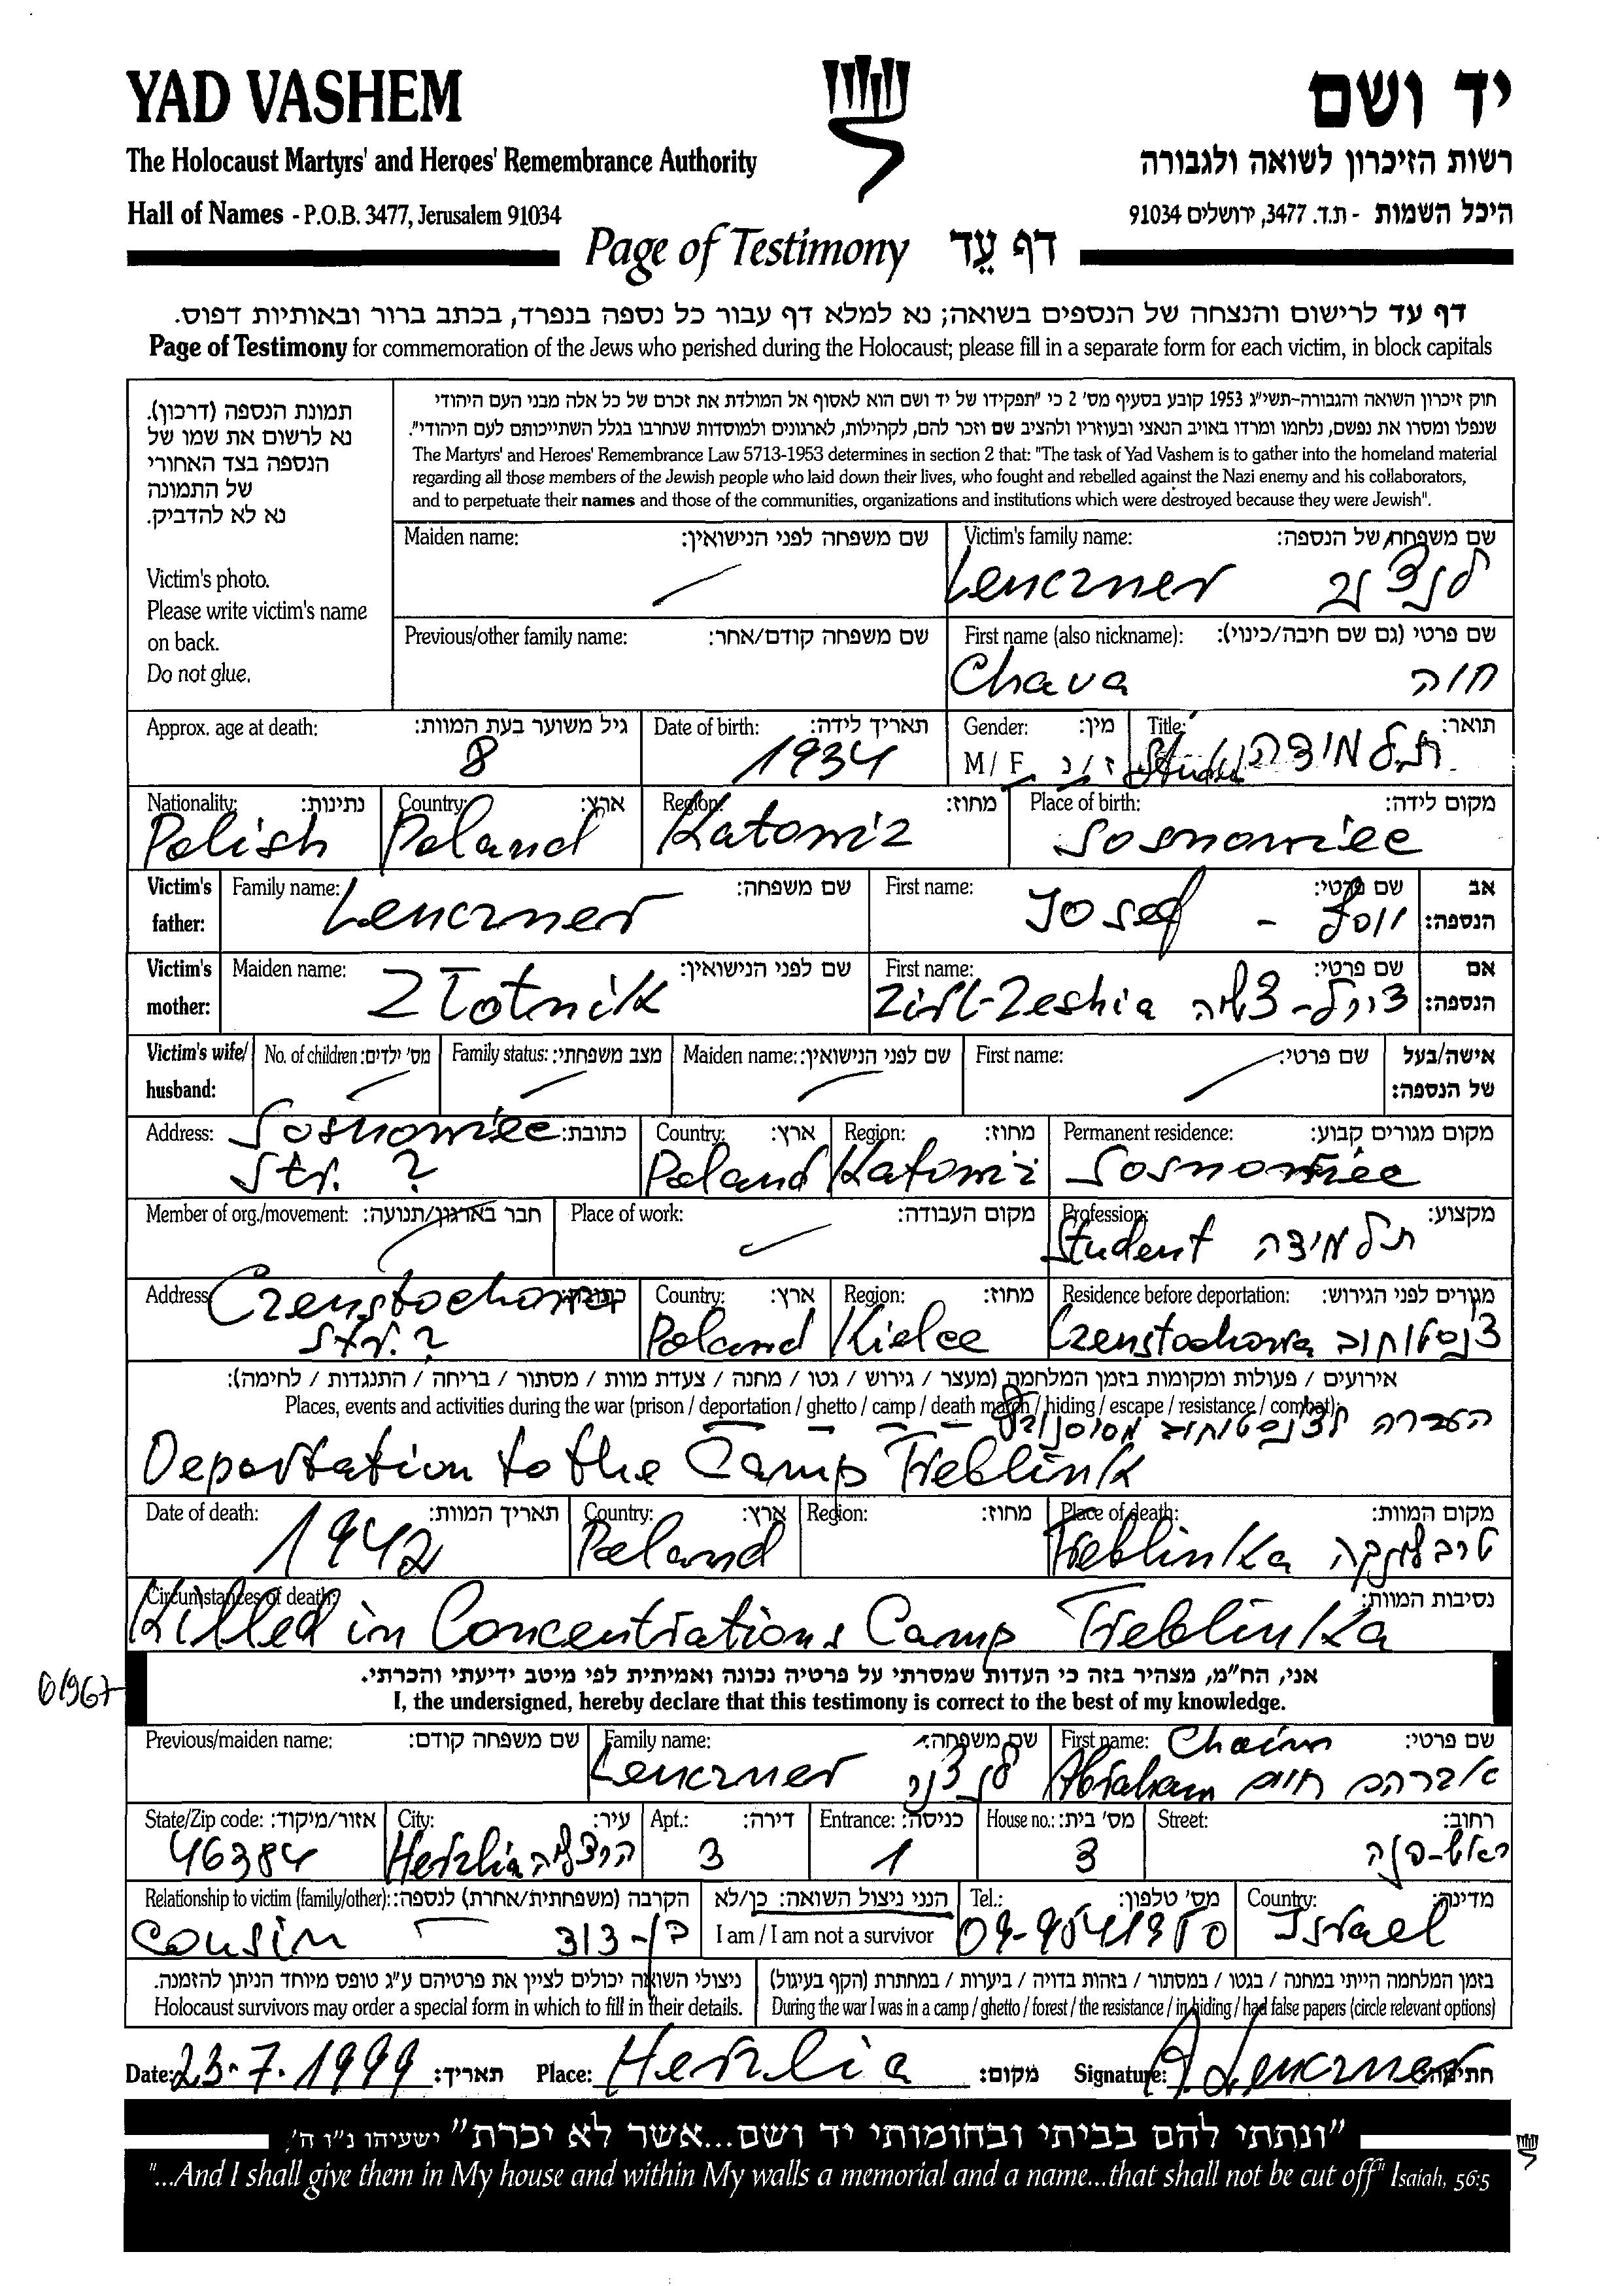 YAD VASHEM
יד ושם
The Holocaust Martyrs' and Heroes' Remembrance Authority
רשות הזיכרון לשואה ולגבורה
Hall of Names - P.O.B. 3477, Jerusalem 91034
היכל השמות - ת.ד. 3477, ירושלים 91034
Page of Testimony דף עֵד
דף עד לרישום והנצחה של הנספים בשואה; נא למלא דף עבור כל נספה בנפרד, בכתב ברור ובאותיות דפוס.
Page of Testimony for commemoration of the Jews who perished during the Holocaust; please fill in a separate form for each victim, in block capitals
תמונת הנספה (דרכון).
נא לרשום את שמו של
הנספה בצד האחורי
של התמונה
נא לא להדביק.
Victim's photo.
Please write victim's name
on back.
Do not glue.
חוק זיכרון השואה והגבורה-תשי"ג 1953 קובע בסעיף מס' 2 כי "תפקידו של יד ושם הוא לאסוף אל המולדת את זכרם של כל אלה מבני העם היהודי
שנפלו ומסרו את נפשם, נלחמו ומרדו באויב הנאצי ובעוזריו ולהציב שם וזכר להם, לקהילות, לארגונים ולמוסדות שנחרבו בגלל השתייכותם לעם היהודי".
The Martyrs' and Heroes' Remembrance Law 5713-1953 determines in section 2 that: "The task of Yad Vashem is to gather into the homeland material
regarding all those members of the Jewish people who laid down their lives, who fought and rebelled against the Nazi enemy and his collaborators,
and to perpetuate their names and those of the communities, organizations and institutions which were destroyed because they were Jewish".
Maiden name: שם משפחה לפני הנישואין: Victim's family name: שם משפחה של הנספה:
Lenczner לנצנר
Previous/other family name: שם משפחה קודם/אחר: First name (also nickname): שם פרטי (גם שם חיבה/כינוי):
Chava חוה
Approx. age at death: גיל משוער בעת המוות: Date of birth: תאריך לידה: Gender: מין: Title: תואר:
8 1934 M / F ז / נ Student תלמידה
Nationality: נתינות: Country: ארץ: Region: מחוז: Place of birth: מקום לידה:
Polish Poland Katowiz Sosnowiec
Victim's father: Family name: שם משפחה: First name: שם פרטי: אב הנספה:
Lenczner Josef - יוסף
Victim's mother: Maiden name: שם לפני הנישואין: First name: שם פרטי: אם הנספה:
Zlotnik Zirl-Zeshia צירל-צשיה
Victim's wife/ husband: No. of children: מס' ילדים: Family status: מצב משפחתי: Maiden name: שם לפני הנישואין: First name: שם פרטי: אישה/בעל של הנספה:
Address: כתובת: Country: ארץ: Region: מחוז: Permanent residence: מקום מגורים קבוע:
Sosnowiec
Str. ? Poland Katowiz Sosnowiec
Member of org./movement: חבר בארגון/תנועה: Place of work: מקום העבודה: Profession: מקצוע:
Student תלמידה
Address: כתובת: Country: ארץ: Region: מחוז: Residence before deportation: מגורים לפני הגירוש:
Czenstochowa
Str. ? Poland Kielce Czenstochowa צ'נסטוחוב
אירועים / פעולות ומקומות בזמן המלחמה (מעצר / גירוש / גטו / מחנה / צעדת מוות / מסתור / בריחה / התנגדות / לחימה):
Places, events and activities during the war (prison / deportation / ghetto / camp / death march / hiding / escape / resistance / combat):
העברה לצ'נסטוחוב מסוסנוביץ
Deportation to the Camp Treblink
Date of death: תאריך המוות: Country: ארץ: Region: מחוז: Place of death: מקום המוות:
1942 Poland Treblinka טרבלינקה
Circumstances of death: נסיבות המוות:
Killed in Concentrations Camp Treblinka
אני, הח"מ, מצהיר בזה כי העדות שמסרתי על פרטיה נכונה ואמיתית לפי מיטב ידיעתי והכרתי.
I, the undersigned, hereby declare that this testimony is correct to the best of my knowledge.
Previous/maiden name: שם משפחה קודם: Family name: שם משפחה: First name: שם פרטי:
Chaim
Lenczner לנצנר Abraham אברהם חיים
State/Zip code: אזור/מיקוד: City: עיר: Apt.: דירה: Entrance: כניסה: House no.: מס' בית: Street: רחוב:
46384 Herzlia הרצליה 3 1 3 ראש-פנה
Relationship to victim (family/other): הקרבה (משפחתית/אחרת) לנספה: הנני ניצול השואה: כן/לא Tel.: מס' טלפון: Country: מדינה:
Cousin בן-דוד I am / I am not a survivor 09-9541350 Israel
ניצולי השואה יכולים לציין את פרטיהם ע"ג טופס מיוחד הניתן להזמנה. בזמן המלחמה הייתי במחנה / בגטו / במסתור / בזהות בדויה / ביערות / במחתרת (הקף בעיגול)
Holocaust survivors may order a special form in which to fill in their details. During the war I was in a camp / ghetto / forest / the resistance / in hiding / had false papers (circle relevant options)
Date: 23-7.1999 תאריך: Place: Herzlia מקום: Signature: A. Lenczner חתימה:
"ונתתי להם בביתי ובחומותי יד ושם...אשר לא יכרת" ישעיהו נ"ו ה',
"...And I shall give them in My house and within My walls a memorial and a name...that shall not be cut off" Isaiah, 56:5